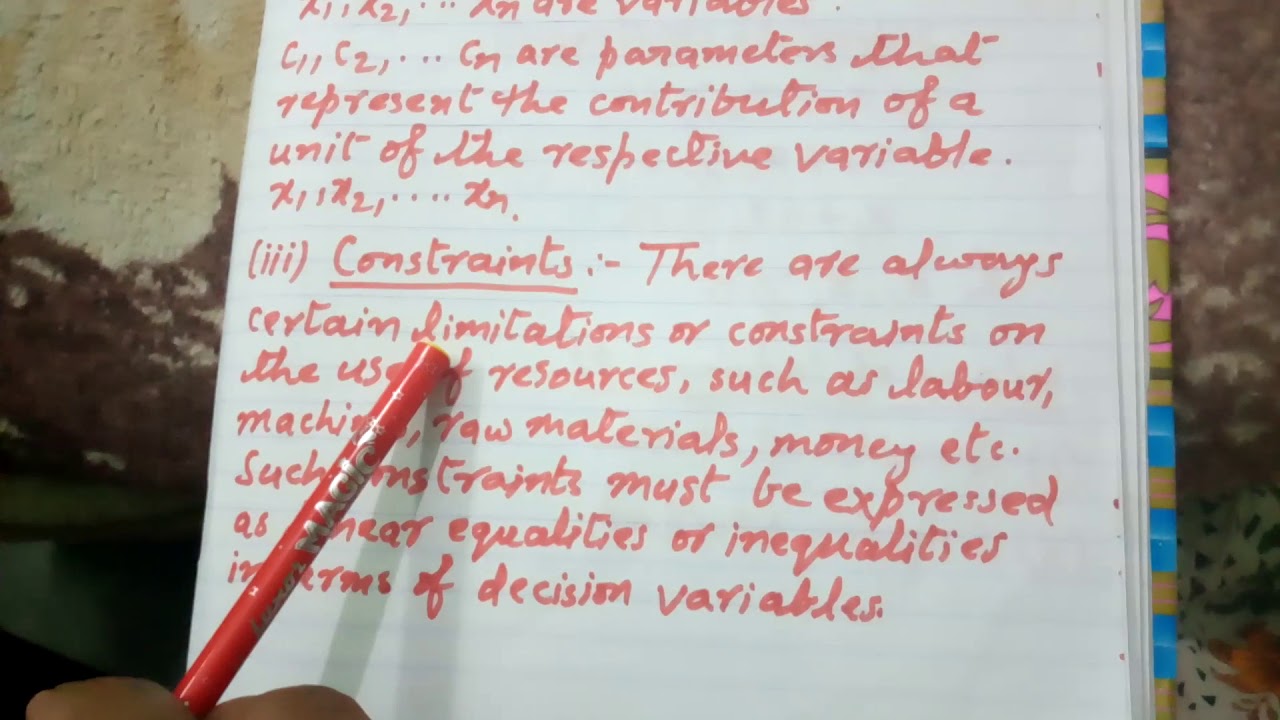 x1, x2, ... xn are variables.
c1, c2, ... cn are parameters that
represent the contribution of a
unit of the respective variable.
x1, x2, .... xn.
(iii) Constraints :- There are always
certain limitations or constraints on
the use of resources, such as labour,
machine, raw materials, money etc.
Such constraints must be expressed
as linear equalities or inequalities
in terms of decision variables.
Luxor MAGIC